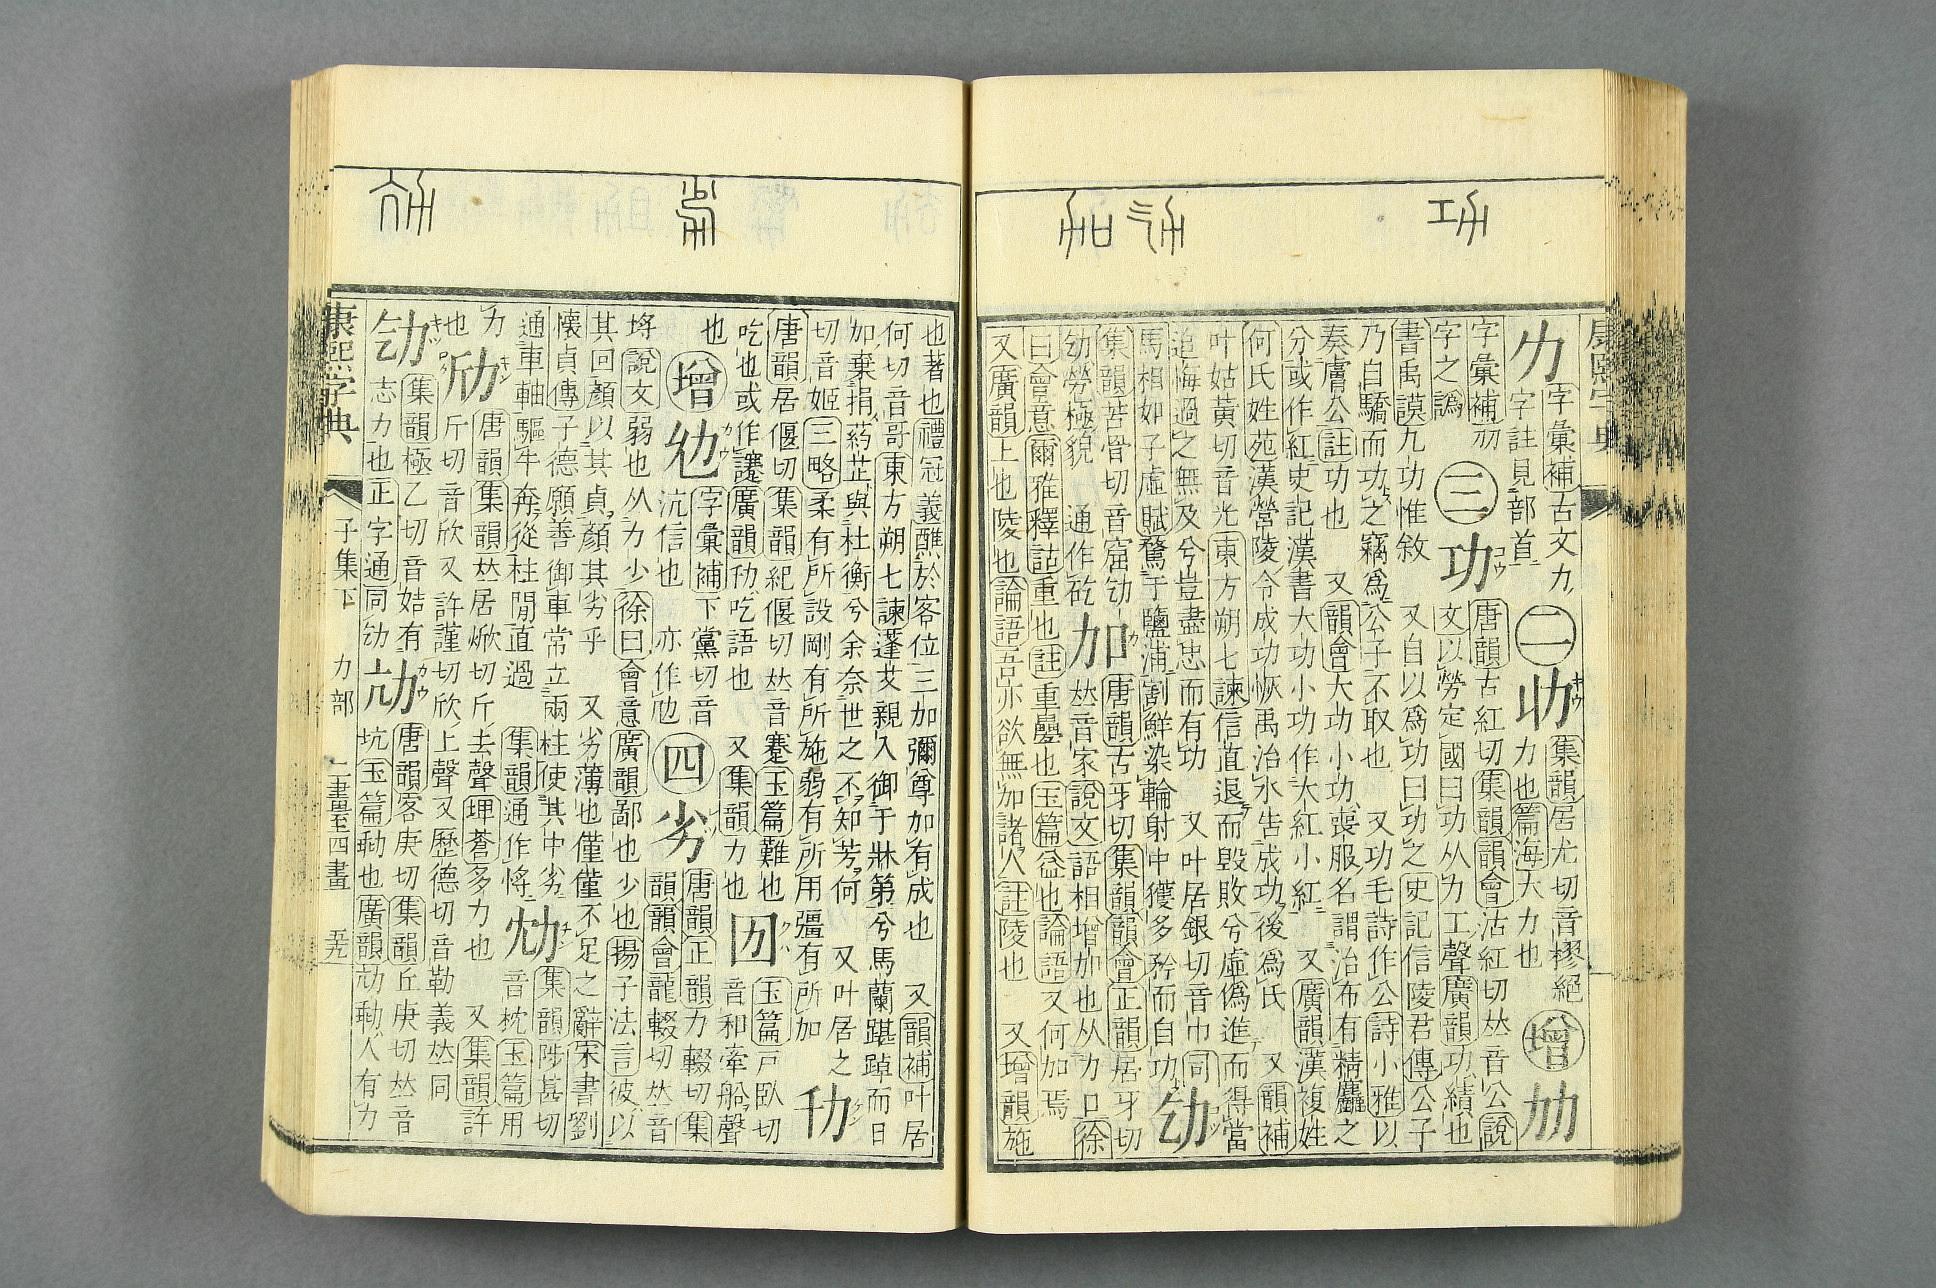 康熙字典
字彙補古文力
字註見部首
㊁
集韻居尤切音樛絕
力也篇海大力也
增
字彙補
字之譌
㊂ 功
唐韻古紅切集韻韻會沽紅切𠀤音公說
文以勞定國曰功从力工聲廣韻功績也
書禹謨九功惟敘 又自以爲功曰功之史記信陵君傳公子
乃自驕而功之竊爲公子不取也 又功毛詩作公詩小雅以
奏膚公註功也 又韻會大功小功喪服名謂治布有精麤之
分或作紅史記漢書大功小功作大紅小紅 又廣韻漢複姓
何氏姓苑漢營陵令成功恢禹治水告成功後爲氏 又韻補
叶姑黃切音光東方朔七諫信直退而毀敗兮虛僞進而得當
追悔過之無及兮豈盡忠而有功 又叶居銀切音巾司
馬相如子虛賦騖于鹽浦割鮮染輪射中獲多矜而自功
集韻苦骨切音窟
勞極貌 通作矻
加
唐韻古牙切集韻韻會正韻居牙切
𠀤音家說文語相增加也从力口徐
曰會意爾雅釋詁重也註重疊也玉篇益也論語又何加焉
又廣韻上也陵也論語吾亦欲無加諸人註陵也 又增韻施
也著也禮冠義醮於客位三加彌尊加有成也 又韻補叶居
何切音哥東方朔七諫蓬艾親入御于牀第兮馬蘭踸踔而日
加棄捐葯芷與杜衡兮余奈世之不知芳何 又叶居之
切音姬三略柔有所設剛有所施弱有所用彊有所加
唐韻居偃切集韻紀偃切𠀤音蹇玉篇難也
吃也或作 廣韻 吃語也 又集韻力也
玉篇戶臥切
音和牽船聲
也
增
字彙補下黨切音
沆信也 亦作
㊃ 劣
唐韻正韻力輟切集
韻韻會龍輟切𠀤音
埓說文弱也从力少徐曰會意廣韻鄙也少也揚子法言彼以
其回顏以其貞顏其劣乎 又劣薄也僅僅不足之辭宋書劉
懷貞傳子德願善御車常立兩柱使其中劣
通車軸驅牛奔從柱閒直過 集韻通作
集韻陟甚切
音枕玉篇用
力
也
唐韻集韻𠀤居焮切斤去聲埤蒼多力也 又集韻許
斤切音欣又許謹切欣上聲又歷德切音勒義𠀤同
集韻極乙切音姞有
志力也正字通同
劥
唐韻客庚切集韻丘庚切𠀤音
坑玉篇 也廣韻劥 人有力
康熙字典 子集下 力部 二畫至四畫